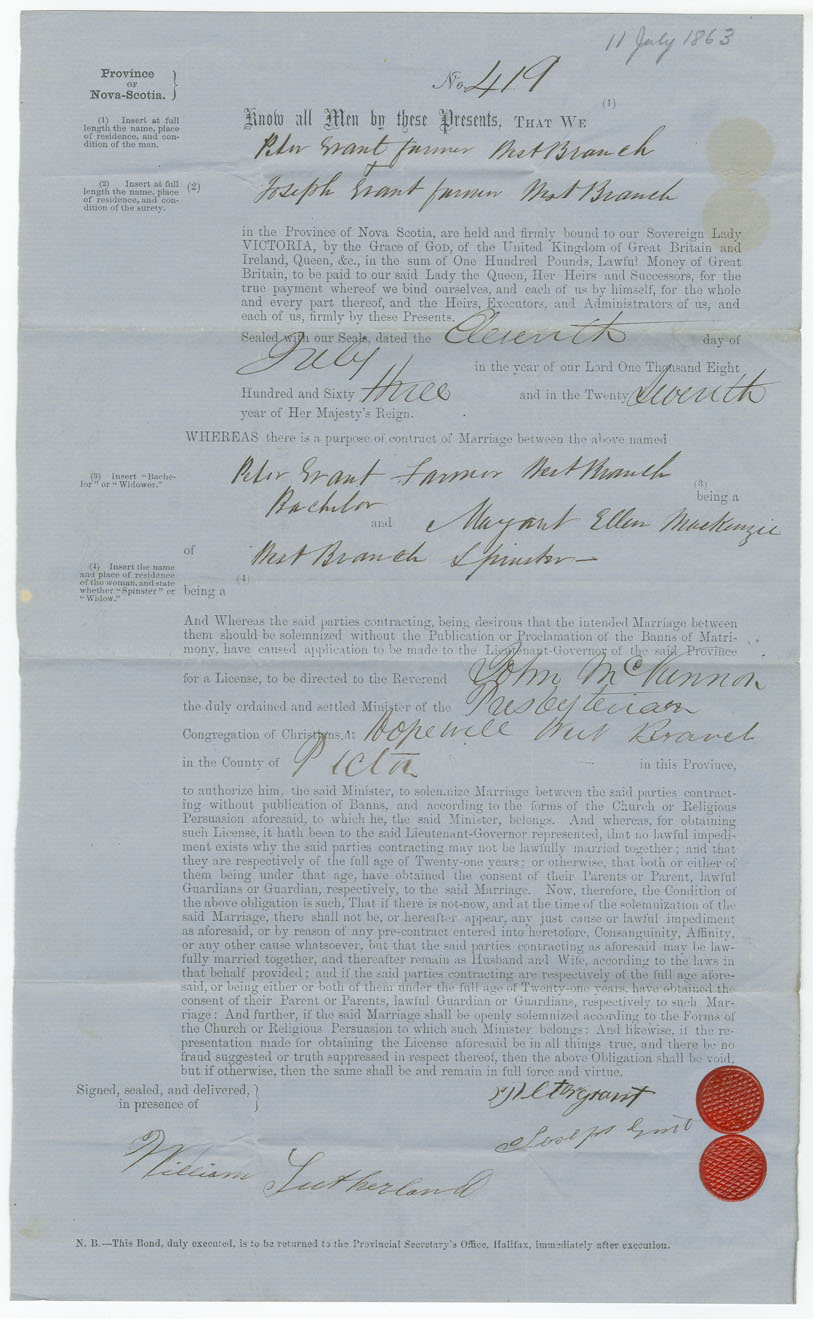 11 July 1863
Province
OF
Nova-Scotia.
No. 419
(1) Insert at full
length the name, place
of residence, and con-
dition of the man.
(1)
Know all Men by these Presents, THAT WE
Peter Grant farmer West Branch
+
(2) Insert at full
length the name, place
of residence, and con-
dition of the surety.
(2)
Joseph Grant farmer West Branch
in the Province of Nova Scotia, are held and firmly bound to our Sovereign Lady
VICTORIA, by the Grace of GOD, of the United Kingdom of Great Britain and
Ireland, Queen, &c., in the sum of One Hundred Pounds, Lawful Money of Great
Britain, to be paid to our said Lady the Queen, Her Heirs and Successors, for the
true payment whereof we bind ourselves, and each of us by himself, for the whole
and every part thereof, and the Heirs, Executors, and Administrators of us, and
each of us, firmly by these Presents.
Sealed with our Seals, dated the Eleventh day of
July in the year of our Lord One Thousand Eight
Hundred and Sixty three and in the Twenty Seventh
year of Her Majesty's Reign.
WHEREAS there is a purpose of contract of Marriage between the above named
(3) Insert "Bache-
lor" or "Widower."
Peter Grant Farmer West Branch
(3)
being a
Bachelor
and Margant Ellen MacKenzie
of West Branch Spinster
(4) Insert the name
and place of residence
of the woman, and state
whether "Spinster" or
"Widow."
(4)
being a
And Whereas the said parties contracting, being desirous that the intended Marriage between
them should be solemnized without the Publication or Proclamation of the Banns of Matri-
mony, have caused application to be made to the Lieutenant-Governor of the said Province
for a License, to be directed to the Reverend John McKinnon
the duly ordained and settled Minister of the Presbyterian
Congregation of Christians, at Hopewell West
in the County of Pictou in this Province,
to authorize him, the said Minister, to solemnize Marriage between the said parties contract-
ing without publication of Banns, and according to the forms of the Church or Religious
Persuasion aforesaid, to which he, the said Minister, belongs. And whereas, for obtaining
such License, it hath been to the said Lieutenant-Governor represented, that no lawful impedi-
ment exists why the said parties contracting may not be lawfully married together; and that
they are respectively of the full age of Twenty-one years; or otherwise, that both or either of
them being under that age, have obtained the consent of their Parents or Parent, lawful
Guardians or Guardian, respectively, to the said Marriage. Now, therefore, the Condition of
the above obligation is such, That if there is not now, and at the time of the solemnization of the
said Marriage, there shall not be, or hereafter appear, any just cause or lawful impediment
as aforesaid, or by reason of any pre-contract entered into heretofore, Consanguinity, Affinity,
or any other cause whatsoever, but that the said parties contracting as aforesaid may be law-
fully married together, and thereafter remain as Husband and Wife, according to the laws in
that behalf provided; and if the said parties contracting are respectively of the full age afore-
said, or being either or both of them under the full age of Twenty-one years, have obtained the
consent of their Parent or Parents, lawful Guardian or Guardians, respectively to such Mar-
riage: And further, if the said Marriage shall be openly solemnized according to the Forms of
the Church or Religious Persuasion to which such Minister belongs: And likewise, if the re-
presentation made for obtaining the License aforesaid be in all things true, and there be no
fraud suggested or truth suppressed in respect thereof, then the above Obligation shall be void,
but if otherwise, then the same shall be and remain in full force and virtue.
Signed, sealed, and delivered,
in presence of
Peter grant
Joseph Grant
William Sutherland
N. B.—This Bond, duly executed, is to be returned to the Provincial Secretary's Office, Halifax, immediately after execution.